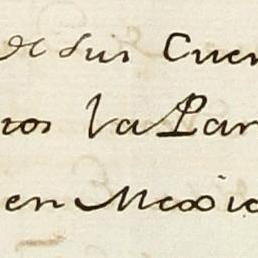 de sus Cuen
ros la Par
en Mexic